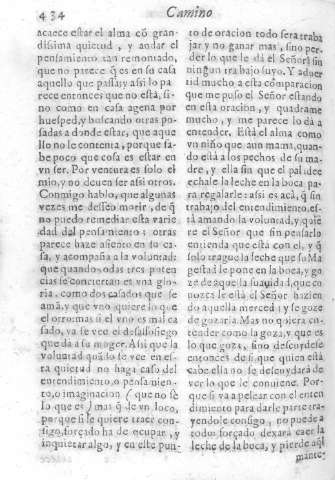 434 Camino
acaece estar el alma cõ gran-
dissima quietud, y andar el
pensamiento tan remontado,
que no parece q̃ es en su casa
aquello que passa; y assi lo pa
rece entonces que no està, si-
no como en casa agena por
huesped, y buscando otras po-
sadas a donde estar, que aque
llo no le contenta, porque sa-
be poco que cosa es estar en
vn ser. Por ventura es solo el
mio, y no deuen ser assi otros.
Conmigo hablo, que algunas
vezes me desseo morir, de q̃
no puedo remediar esta varie
dad del pensamiento: otras
parece haze assiento en su ca-
sa, y acompaña a la voluntad:
que quando todas tres poten
cias se conciertan es vna glo
ria: como dos casados que se
amã, y que vno quiere lo que
el otro: mas si vno es mal ca
sado, ya se vee el desassossiego
que da a su muger. Assi que la
voluntad quãdo se vee en es-
ta quietud no haga caso del
entendimiento, o pensamien-
to, o imaginacion (que no sè
lo que es) mas q̃ de vn loco,
porque si le quiere traer con-
sigo, forçado ha de ocupar, y
inquietar algo, y en este pun-
to de oracion todo serà traba
jar y no ganar mas, sino per-
der lo que le dà el Señor sin
ningun trabajo suyo. Y aduer
tid mucho a esta comparacion
que me puso el Señor estando
en esta oracion, y quadrame
mucho, y me parece lo dà a
entender. Està el alma como
vn niño que aun mama, quan-
do està a los pechos de su ma-
dre, y ella sin que el paladee
echale la leche en la boca para
regalarle: assi es acà, q̃ sin
trabajo del entendimiento, es-
tà amando la voluntad, y quie
re el Señor que sin pensarlo
entienda que està con el, y q̃
solo trague la leche que su Ma
gestad le pone en la boca, y go
ze de aquella suauidad, que co
nozca le està el Señor hazien
do aquella merced, y se goze
de gozarla. Mas no quiera en-
tender como la goza, y que es
lo que goza, sino descuydese
entonces de si, que quien està
cabe ella no se descuydarà de
ver lo que le conuiene. Por-
que si va a pelear con el enten
dimiento para darle parte tra-
yendole consigo, no puede a
todo: forçado dexarà caer la
leche de la boca, y pierde aq̃l
mante-